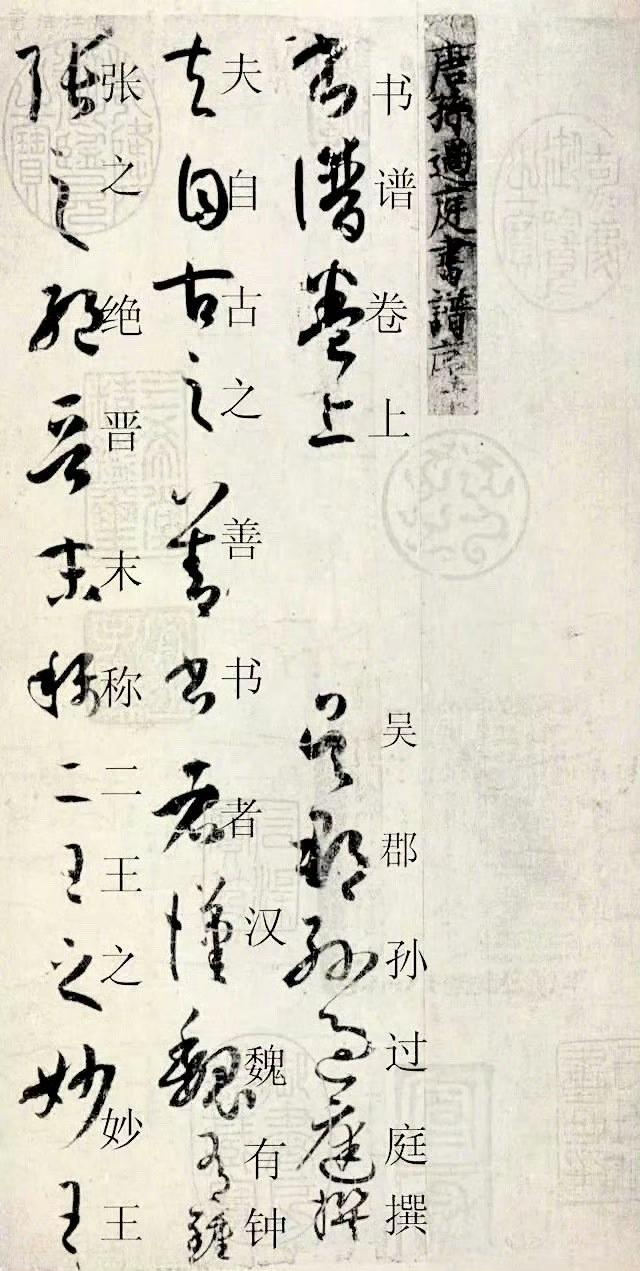 唐孫過庭書譜序
書譜卷上 吳郡孫過庭撰
书谱卷上 吴郡孙过庭撰
夫自古之善書者漢魏有鍾
夫自古之善书者汉魏有钟
張之絕晉末稱二王之妙王
张之绝晋末称二王之妙王